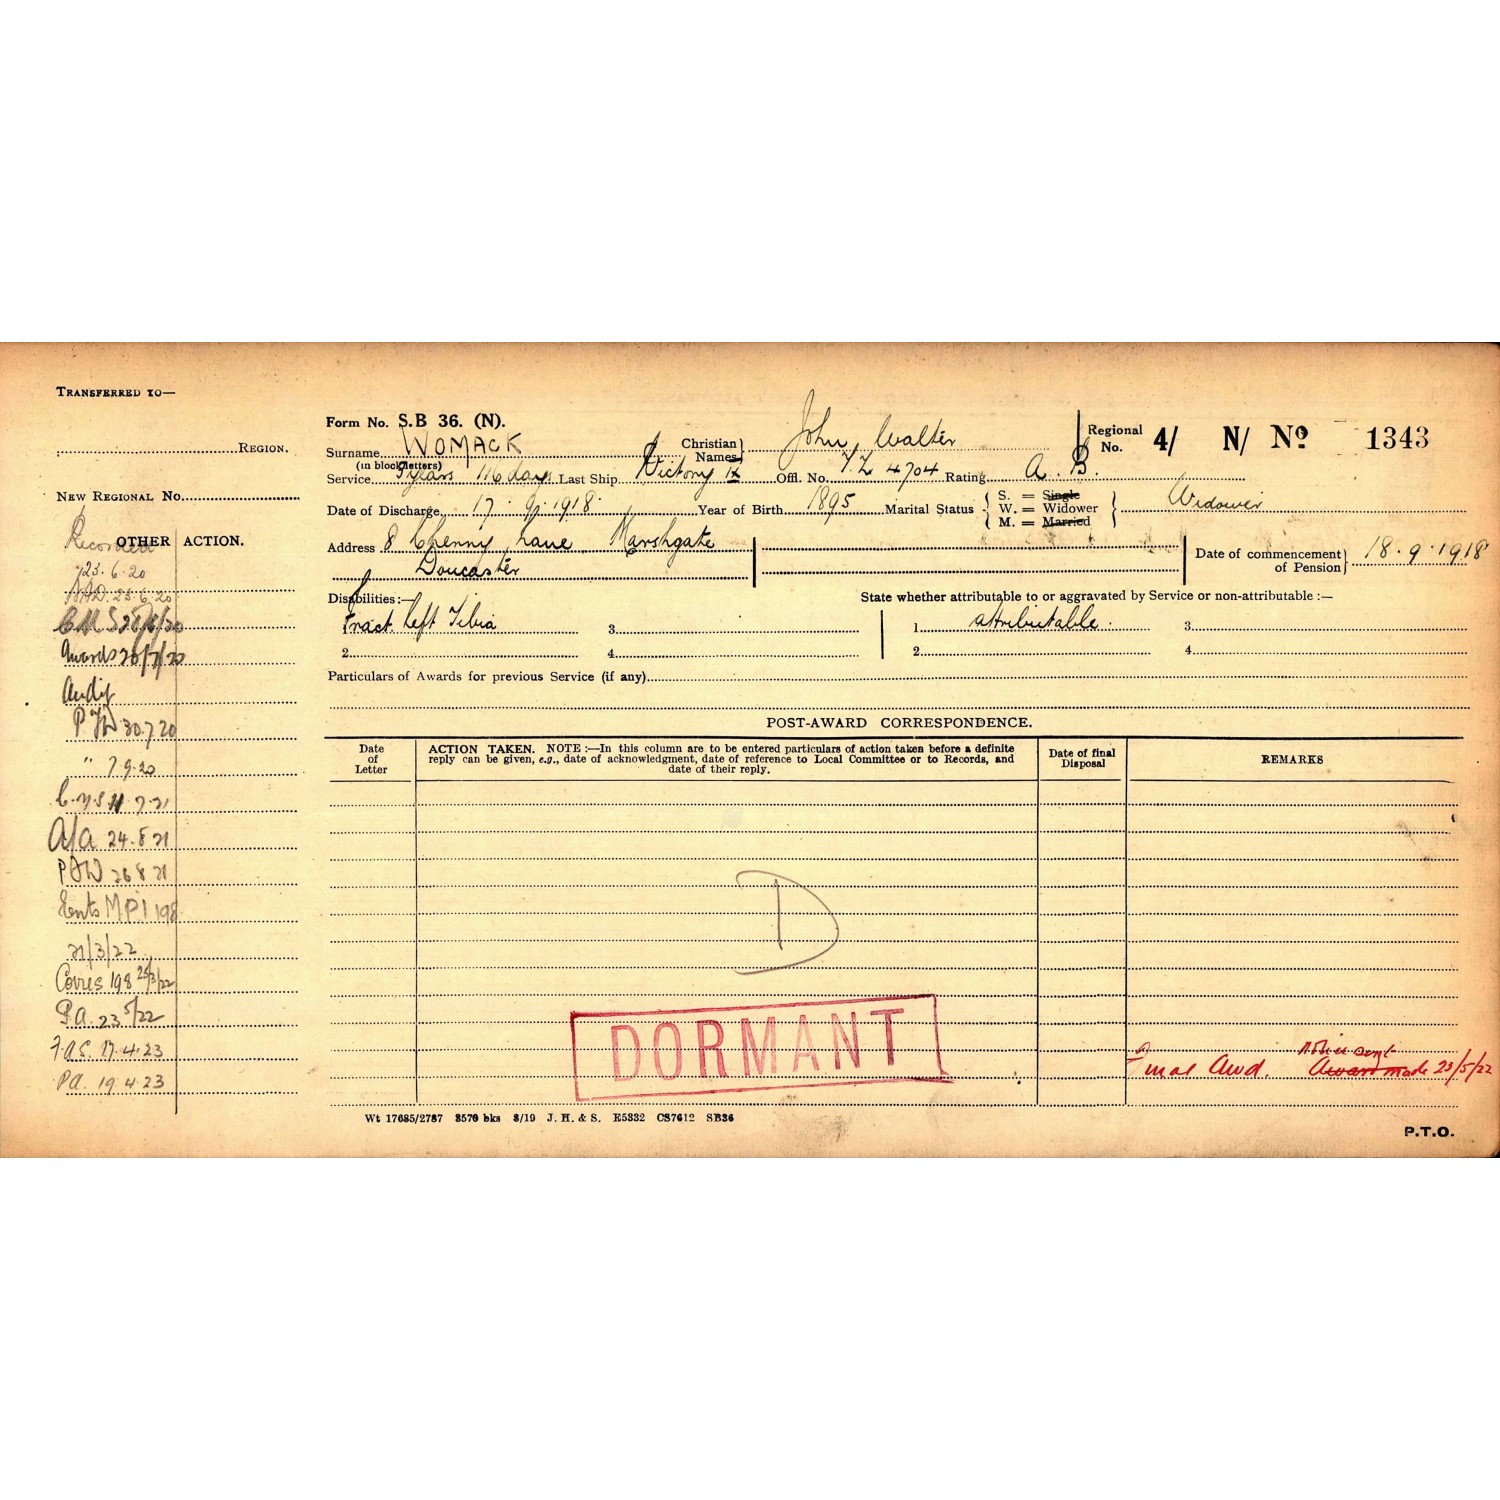 TRANSFERRED TO—
REGION.
NEW REGIONAL No.
Recorded
OTHER ACTION.
23.6.20
23.6.20
C.M.S 28/6/20
Awards 26/7/20
Audit
P 30.7.20
" 7.9.20
11.7.21
A/A 24.8.21
26 8 21
MPI 198
21/3/22
Corres 198 25/3/22
P.A. 23 5/22
F.A.S. 17.4.23
P.A. 19.4.23
Form No. S.B 36. (N).
Surname WOMACK Christian Names John Walter Regional No. 4/ N/ No 1343
(in block letters)
Service 3 years 116 days Last Ship Victory IX Offl. No. T.Z 4704 Rating A.B.
Date of Discharge 17.9.1918. Year of Birth 1895 Marital Status S. = Single W. = Widower M. = Married Widower
Address 8 Cherry Lane Marshgate
Doncaster
Date of commencement of Pension 18.9.1918
Disabilities:— State whether attributable to or aggravated by Service or non-attributable:—
1 Fract. Left Tibia 3 1 attributable. 3
2 4 2 4
Particulars of Awards for previous Service (if any)
POST-AWARD CORRESPONDENCE.
Date of Letter
ACTION TAKEN. NOTE:—In this column are to be entered particulars of action taken before a definite
reply can be given, e.g., date of acknowledgment, date of reference to Local Committee or to Records, and
date of their reply.
Date of final Disposal
REMARKS
D
DORMANT
Final Awd. Award made 23/5/22
Wt 17685/2787 3570 bks 8/19 J. H. & S. E5332 CS7612 SB36
P.T.O.